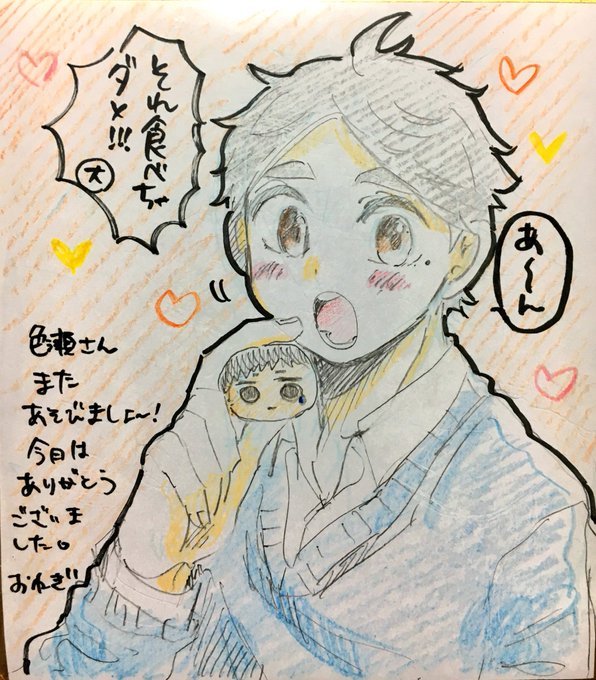 それ食べちゃ
ダメ!!!
大
あ〜ん
色瀬さん
また
あそびましょ〜!
今日は
ありがとう
ございま
した。
おねぎ